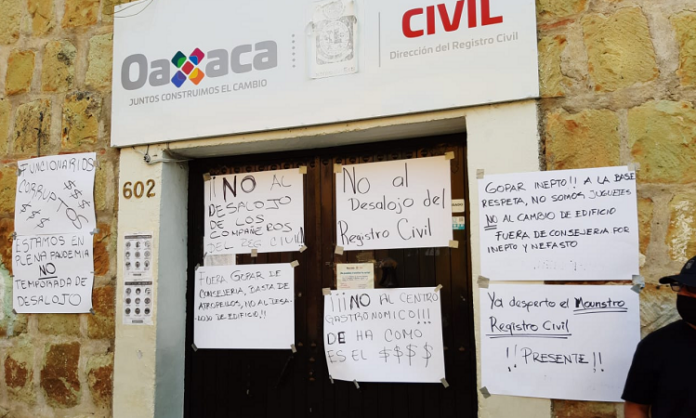 Oaxaca
JUNTOS CONSTRUIMOS EL CAMBIO
CIVIL
Dirección del Registro Civil
602
FUNCIONARIOS
CORRUPTOS
$ $ $
$ $ $
ESTAMOS EN
PLENA PANDEMIA
NO
TEMPORADA DE
DESALOJO
¡¡¡NO AL
DESALOJO
DE LOS
COMPAÑEROS
DEL REG CIVIL
No al
Desalojo del
Registro Civil
GOPAR INEPTO!! A LA BASE
RESPETA, NO SOMOS JUGUETES
NO AL CAMBIO DE EDIFICIO
FUERA DE CONSEJERIA POR
INEPTO Y NEFASTO
FUERA GOPAR DE
CONSEJERIA, BASTA DE
ATROPELLOS, NO AL DESA-
LOJO DE EDIFICIO!!
¡¡¡NO AL CENTRO
GASTRONOMICO!!!
DE HA COMO
ES EL $$$$
Ya desperto el Mounstro
Registro Civil
¡¡PRESENTE!!